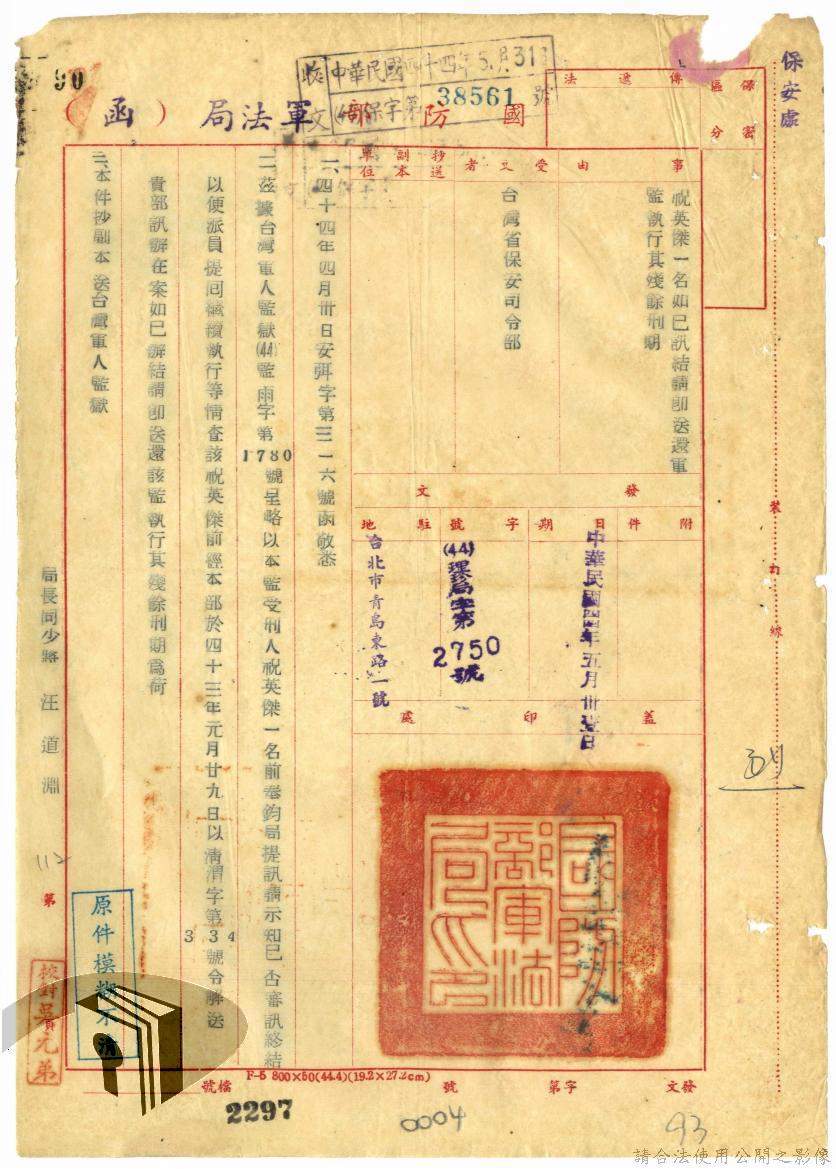 保安處
裝訂線
保密
區分
傳遞法
國防部軍法局（函）
收文
中華民國四十四年5月31日
(44)保字第38561號
90
事由
祝英傑一名如已訊結請即送還軍
監執行其殘餘刑期
受文者
台灣省保安司令部
抄送
副本
單位
發文
附件
日期
中華民國四四年五月卅壹日
字號
(44)理局字第
2750
號
駐地
台北市青島東路一號
蓋印處
國防部軍法局印
一、四十四年四月卅日安弭字第三一六號函敬悉
二、茲據台灣軍人監獄(44)監雨字第1780號呈略以本監受刑人祝英傑一名前奉鈞局提訊請示知已否審訊終結
以便派員提回繼續執行等情查該祝英傑前經本部於四十三年元月廿九日以清渭字第334號令解送
貴部訊辦在案如已辦結請即送還該監執行其殘餘刑期為荷
三、本件抄副本送台灣軍人監獄
局長同少將 汪道淵
112
第
原件模糊不清
校對吳元弟
F-5 800×50(44.4)(19.2×27.2cm)
發文 字第 號
檔號
2297
0004
93
請合法使用公開之影像